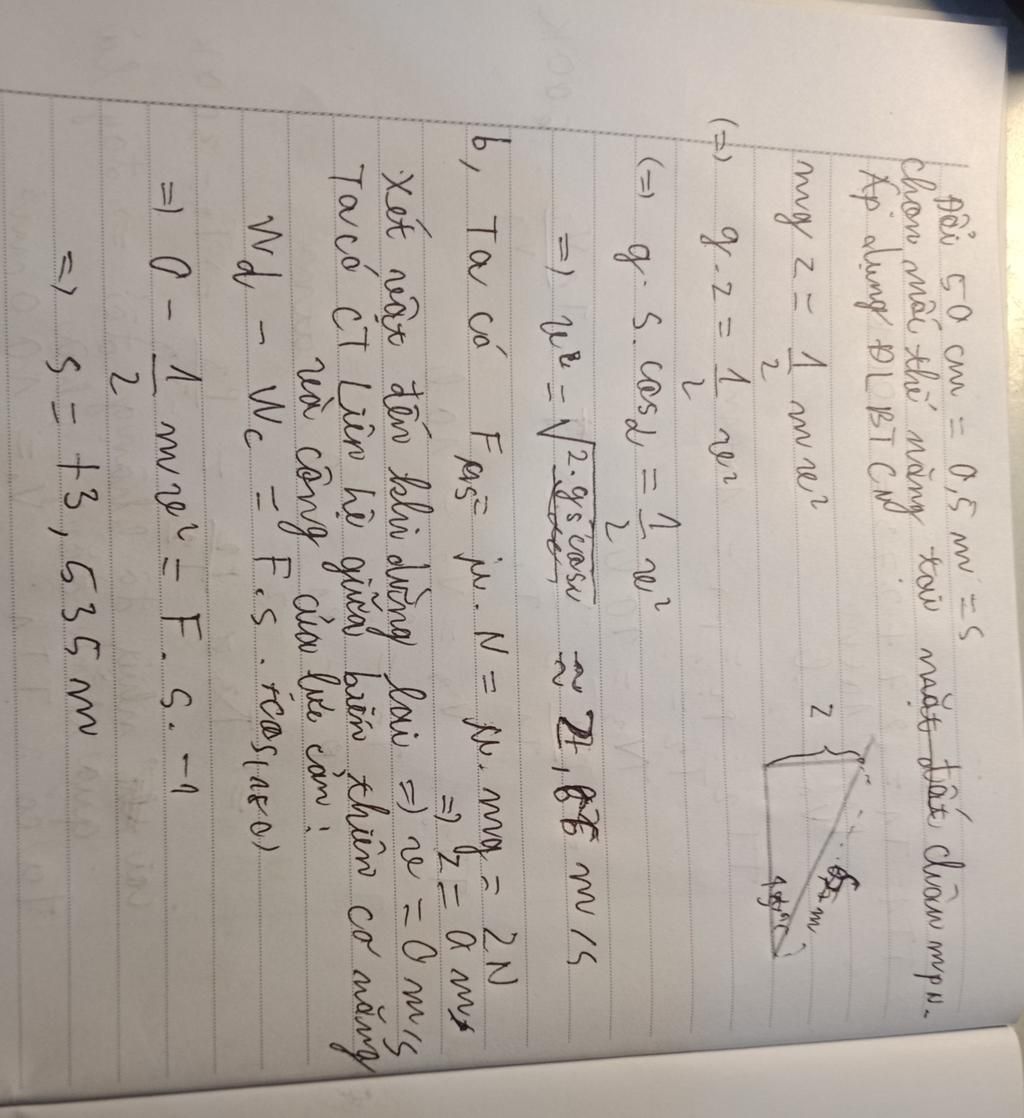 Đổi 50 cm = 0,5 m = s
chọn mốc thế năng tại mặt đất chân mpn.
Áp dụng ĐLBTCN
mgz = 1/2 mv²
z
m
(=) g.z = 1/2 v²
(=) g. s. cosα = 1/2 v²
=) v² = √2.gscosα ≈ m/s
b, Ta có Fms = µ. N = µ. mg = 2N
=) z = 0 m
Xét vật đến khi dừng lại =) v = 0 m/s
Ta có CT Liên hệ giữa biến thiên cơ năng
và công của lực cản:
Wd - Wc = F.s. cos(180)
=) 0 - 1/2 mv² = F. s. -1
=) s = +3,535m